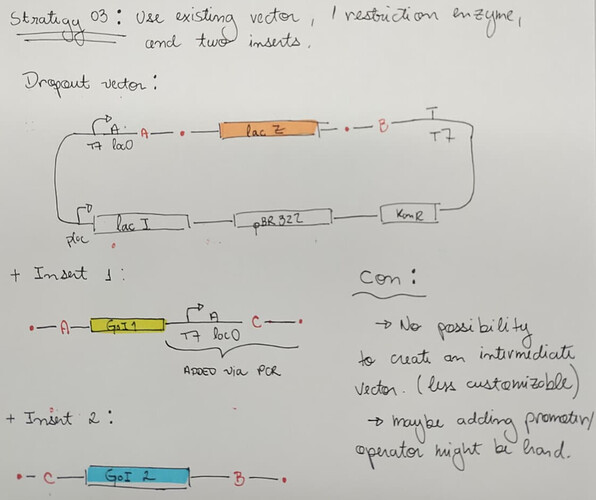 Strategy 03: Use existing vector, 1 restriction enzyme,
and two inserts.
Dropout vector:
A A • lac Z • B T
T7 lacO T7
plac lac I pBR322 KanR
+ Insert 1:
• A GoI 1 A C •
T7 lacO
ADDED via PCR
+ Insert 2:
• C GoI 2 B •
Con:
→ No possibility
to create an intermediate
vector. (less customizable)
→ maybe adding promoter/
operator might be hard.